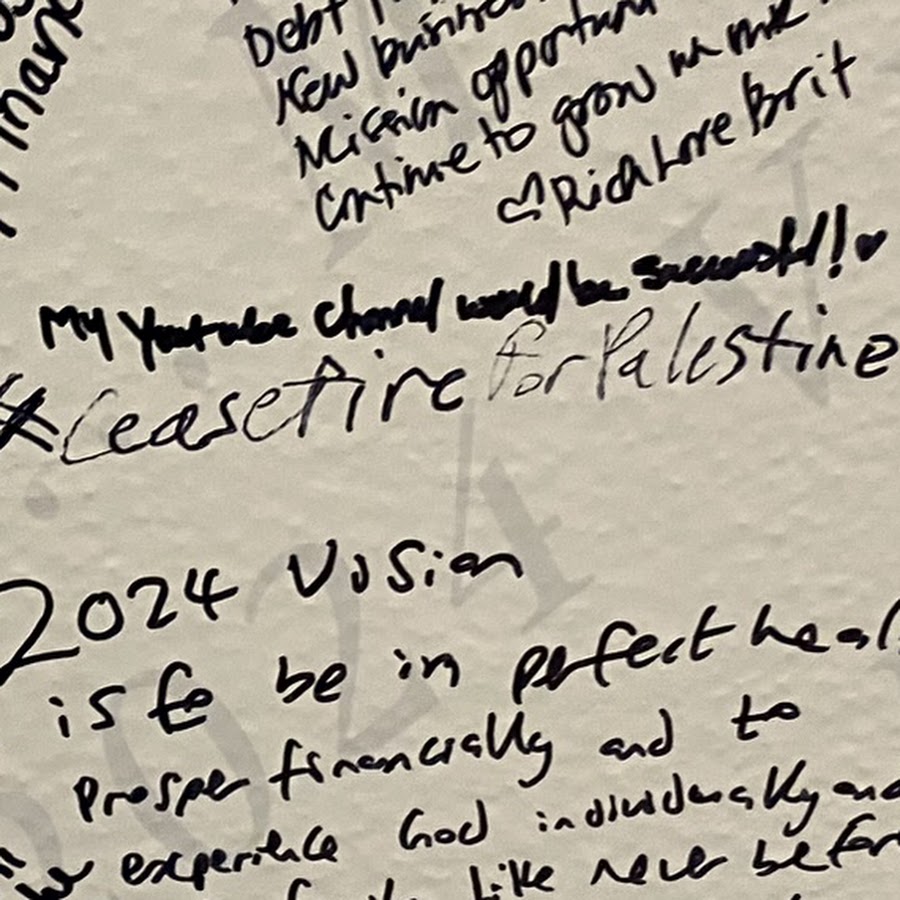 Debt
New business
Mission opportun
Continue to grow in me
♡ Rich Love Brit
My Youtube Channel would be successful! ♥
#CeaseFire for Palestine
2024 Vision
is to be in perfect heal
prosper financially and to
experience God individually and
like never befor
2024